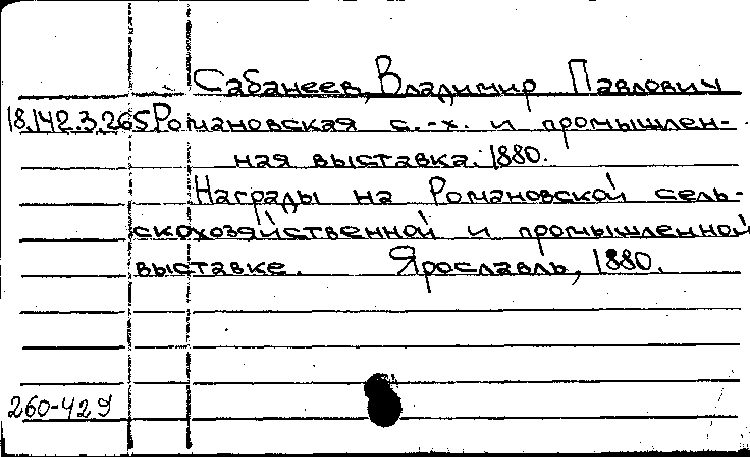 Сабанеев, Владимир Павлович
18.142.3.265 Романовская с.-х. и промышлен-
ная выставка. 1880.
Награды на Романовской сель-
скохозяйственной и промышленной
выставке. Ярославль, 1880.
260-429